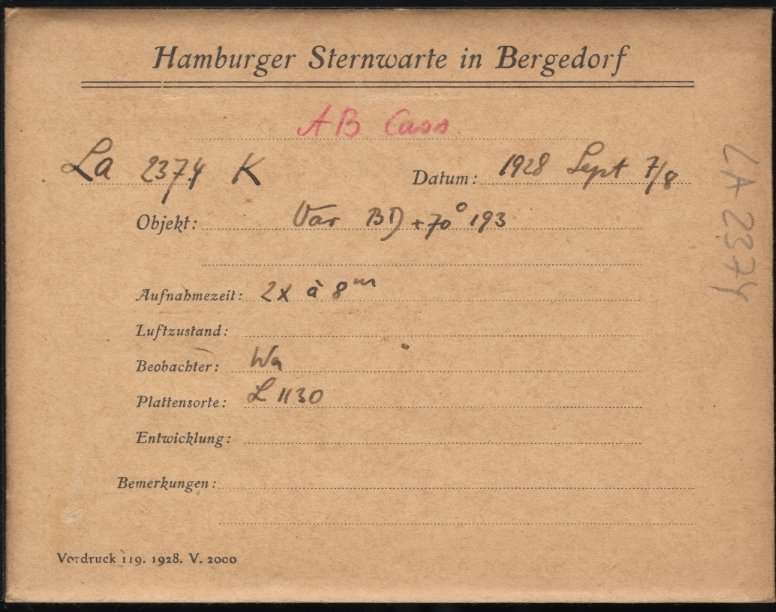 Hamburger Sternwarte in Bergedorf
AB Cass
La 2374 K Datum: 1928 Sept 7/8
Objekt: Var BD +70° 193
Aufnahmezeit: 2x à 8m
Luftzustand:
Beobachter: Wa
Plattensorte: L 1130
Entwicklung:
Bemerkungen:
Vordruck 119. 1928. V. 2000
LA 2374